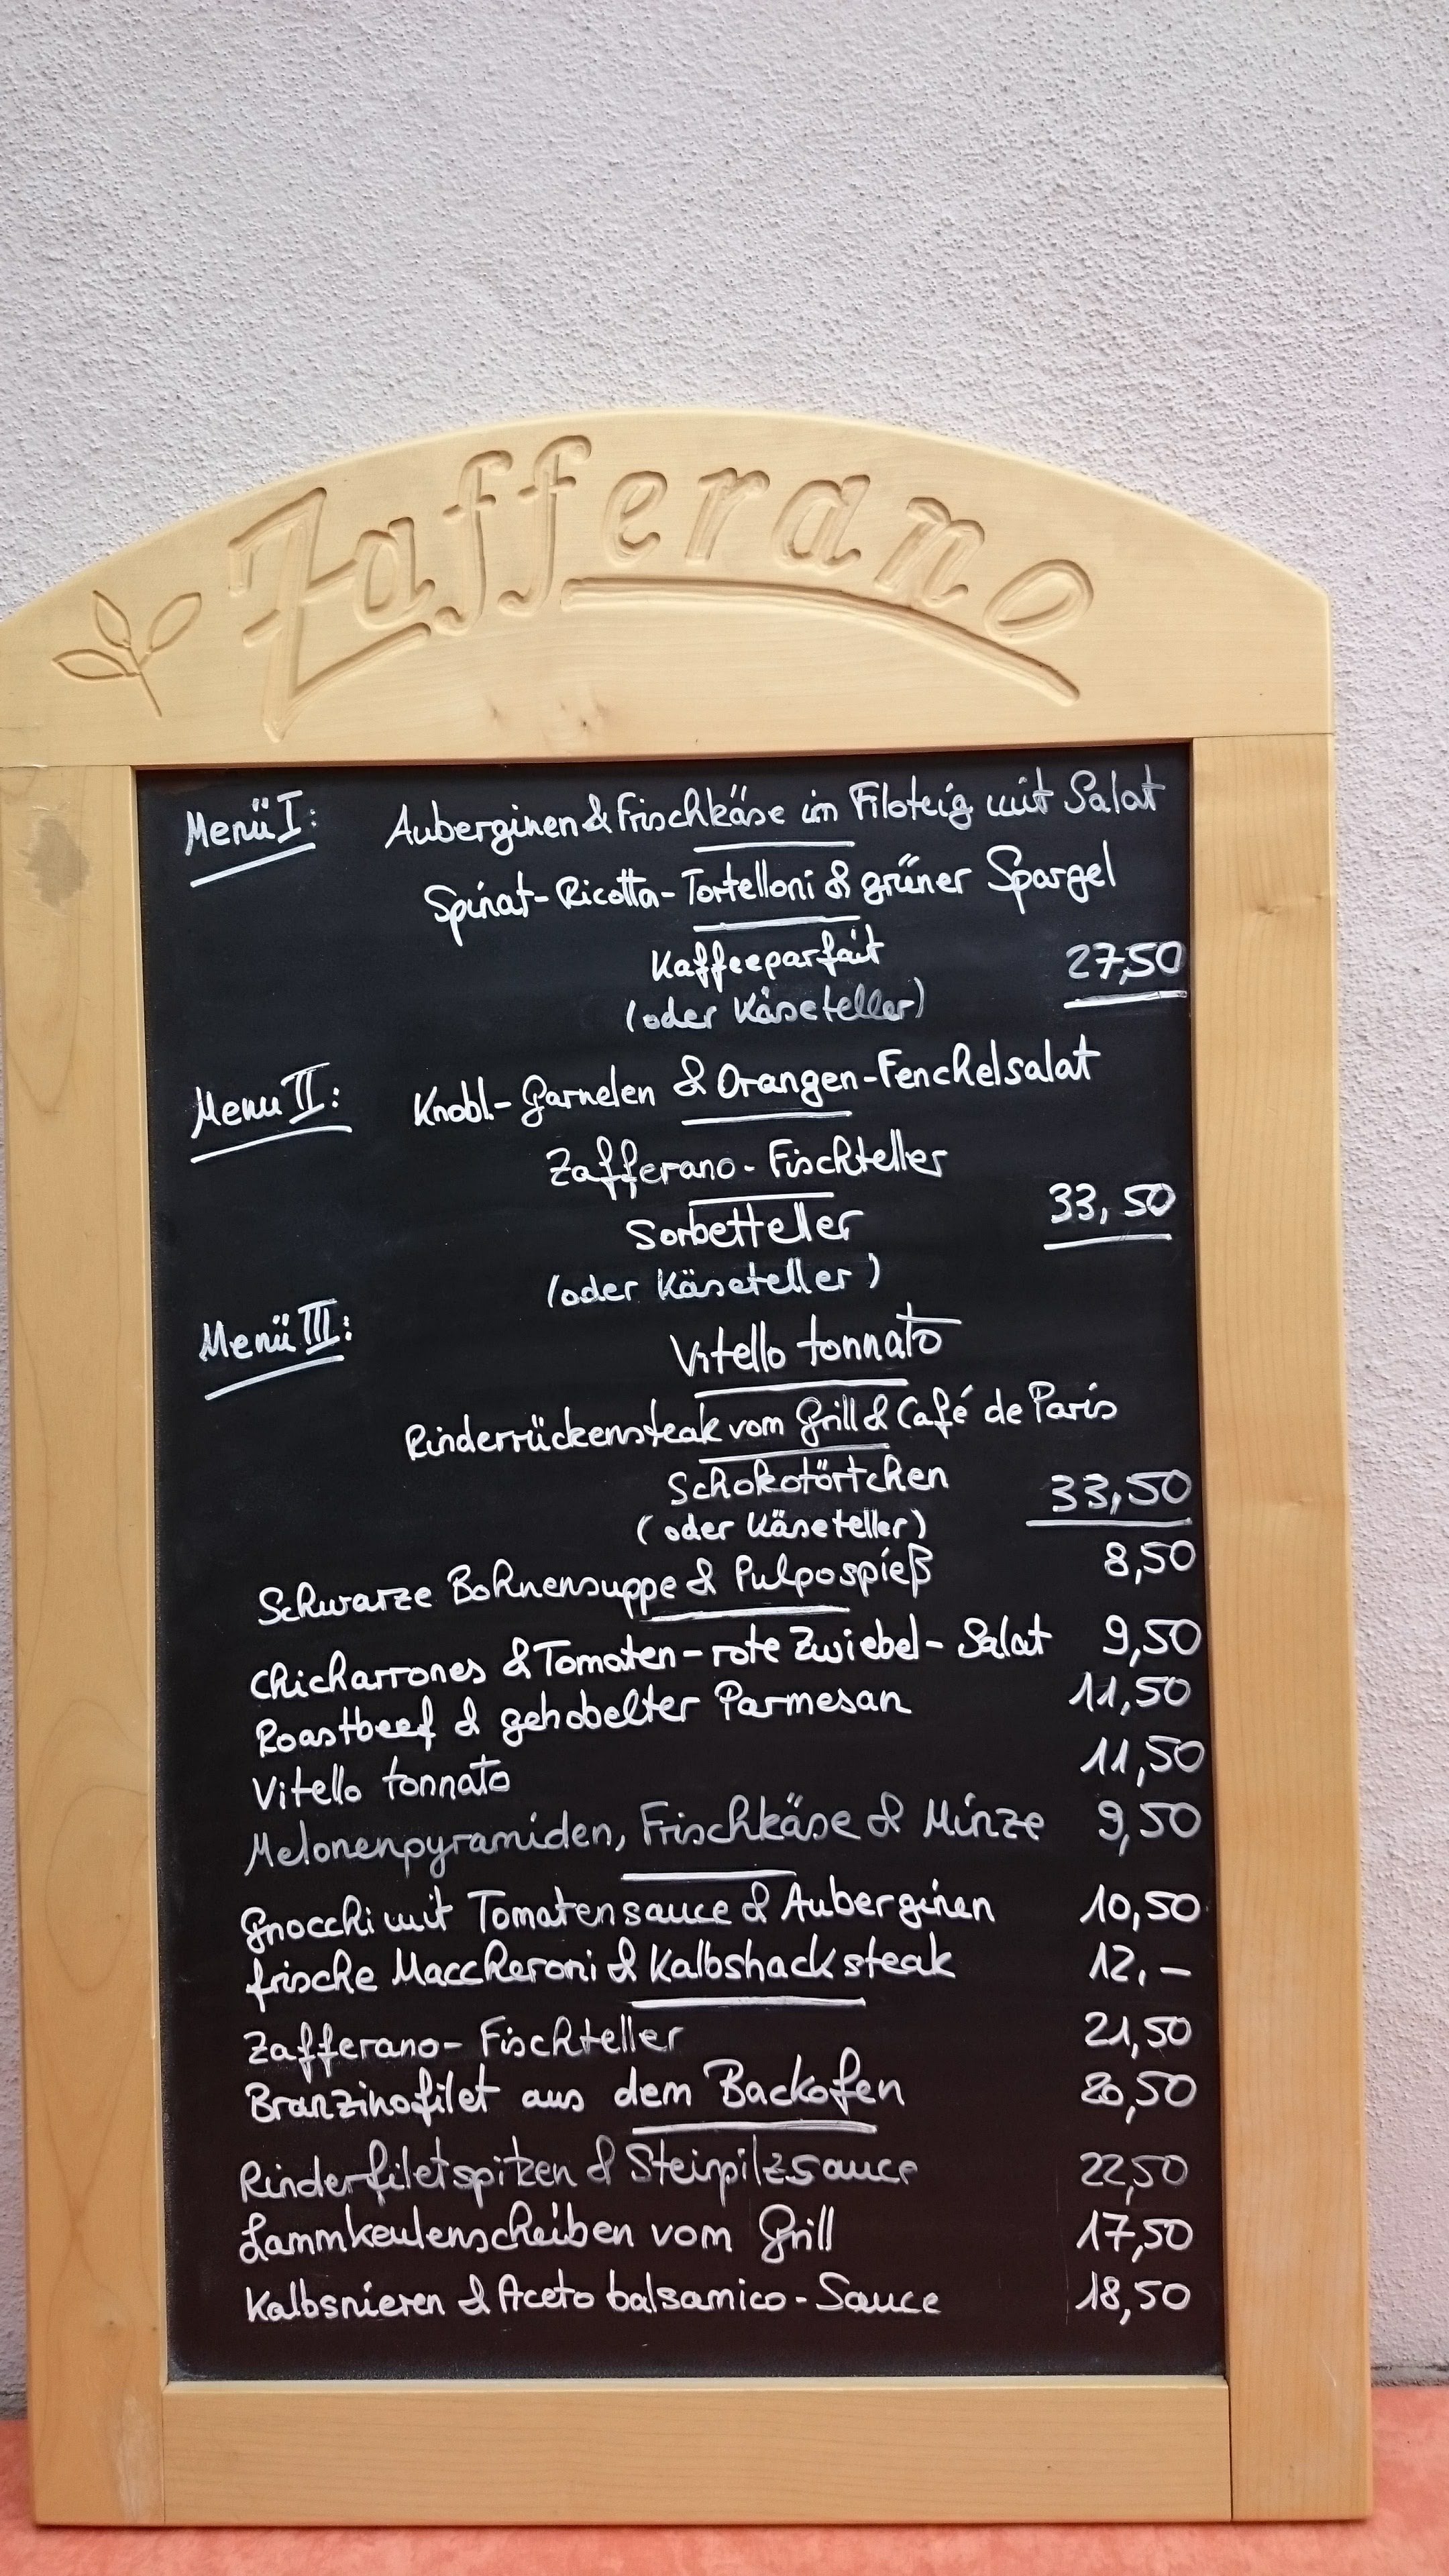 Zafferano
Menü I: Auberginen & Frischkäse im Filoteig mit Salat
Spinat-Ricotta-Tortelloni & grüner Spargel
Kaffeeparfait 27,50
(oder Käseteller)
Menu II: Knobl-Garnelen & Orangen-Fenchelsalat
Zafferano-Fischteller
Sorbetteller 33,50
(oder Käseteller)
Menü III: Vitello tonnato
Rinderrückensteak vom Grill & Café de Paris
Schokotörtchen 33,50
(oder Käseteller)
Schwarze Bohnensuppe & Pulpospieß 8,50
Chicharrones & Tomaten-rote Zwiebel-Salat 9,50
Roastbeef & gehobelter Parmesan 11,50
Vitello tonnato 11,50
Melonenpyramiden, Frischkäse & Minze 9,50
Gnocchi mit Tomatensauce & Auberginen 10,50
frische Maccheroni & Kalbshacksteak 12,-
Zafferano-Fischteller 21,50
Branzinofilet aus dem Backofen 20,50
Rinderfiletspitzen & Steinpilzsauce 22,50
Lammkeulenscheiben vom Grill 17,50
Kalbsnieren & Aceto balsamico-Sauce 18,50